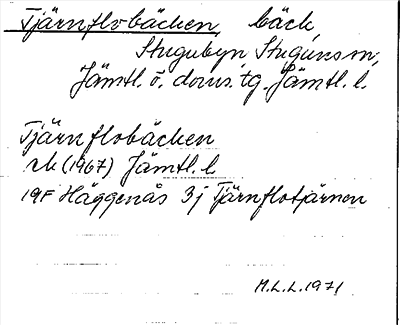 Tjärnflobäcken, bäck,
Stugubyn Stuguns sn,
Jämtl. ö. doms. tg. Jämtl. l.
Tjärnflobäcken
rk (1967) Jämtl. l
19F Häggenås 3j Tjärnflotjärnen
M.L.L. 1971